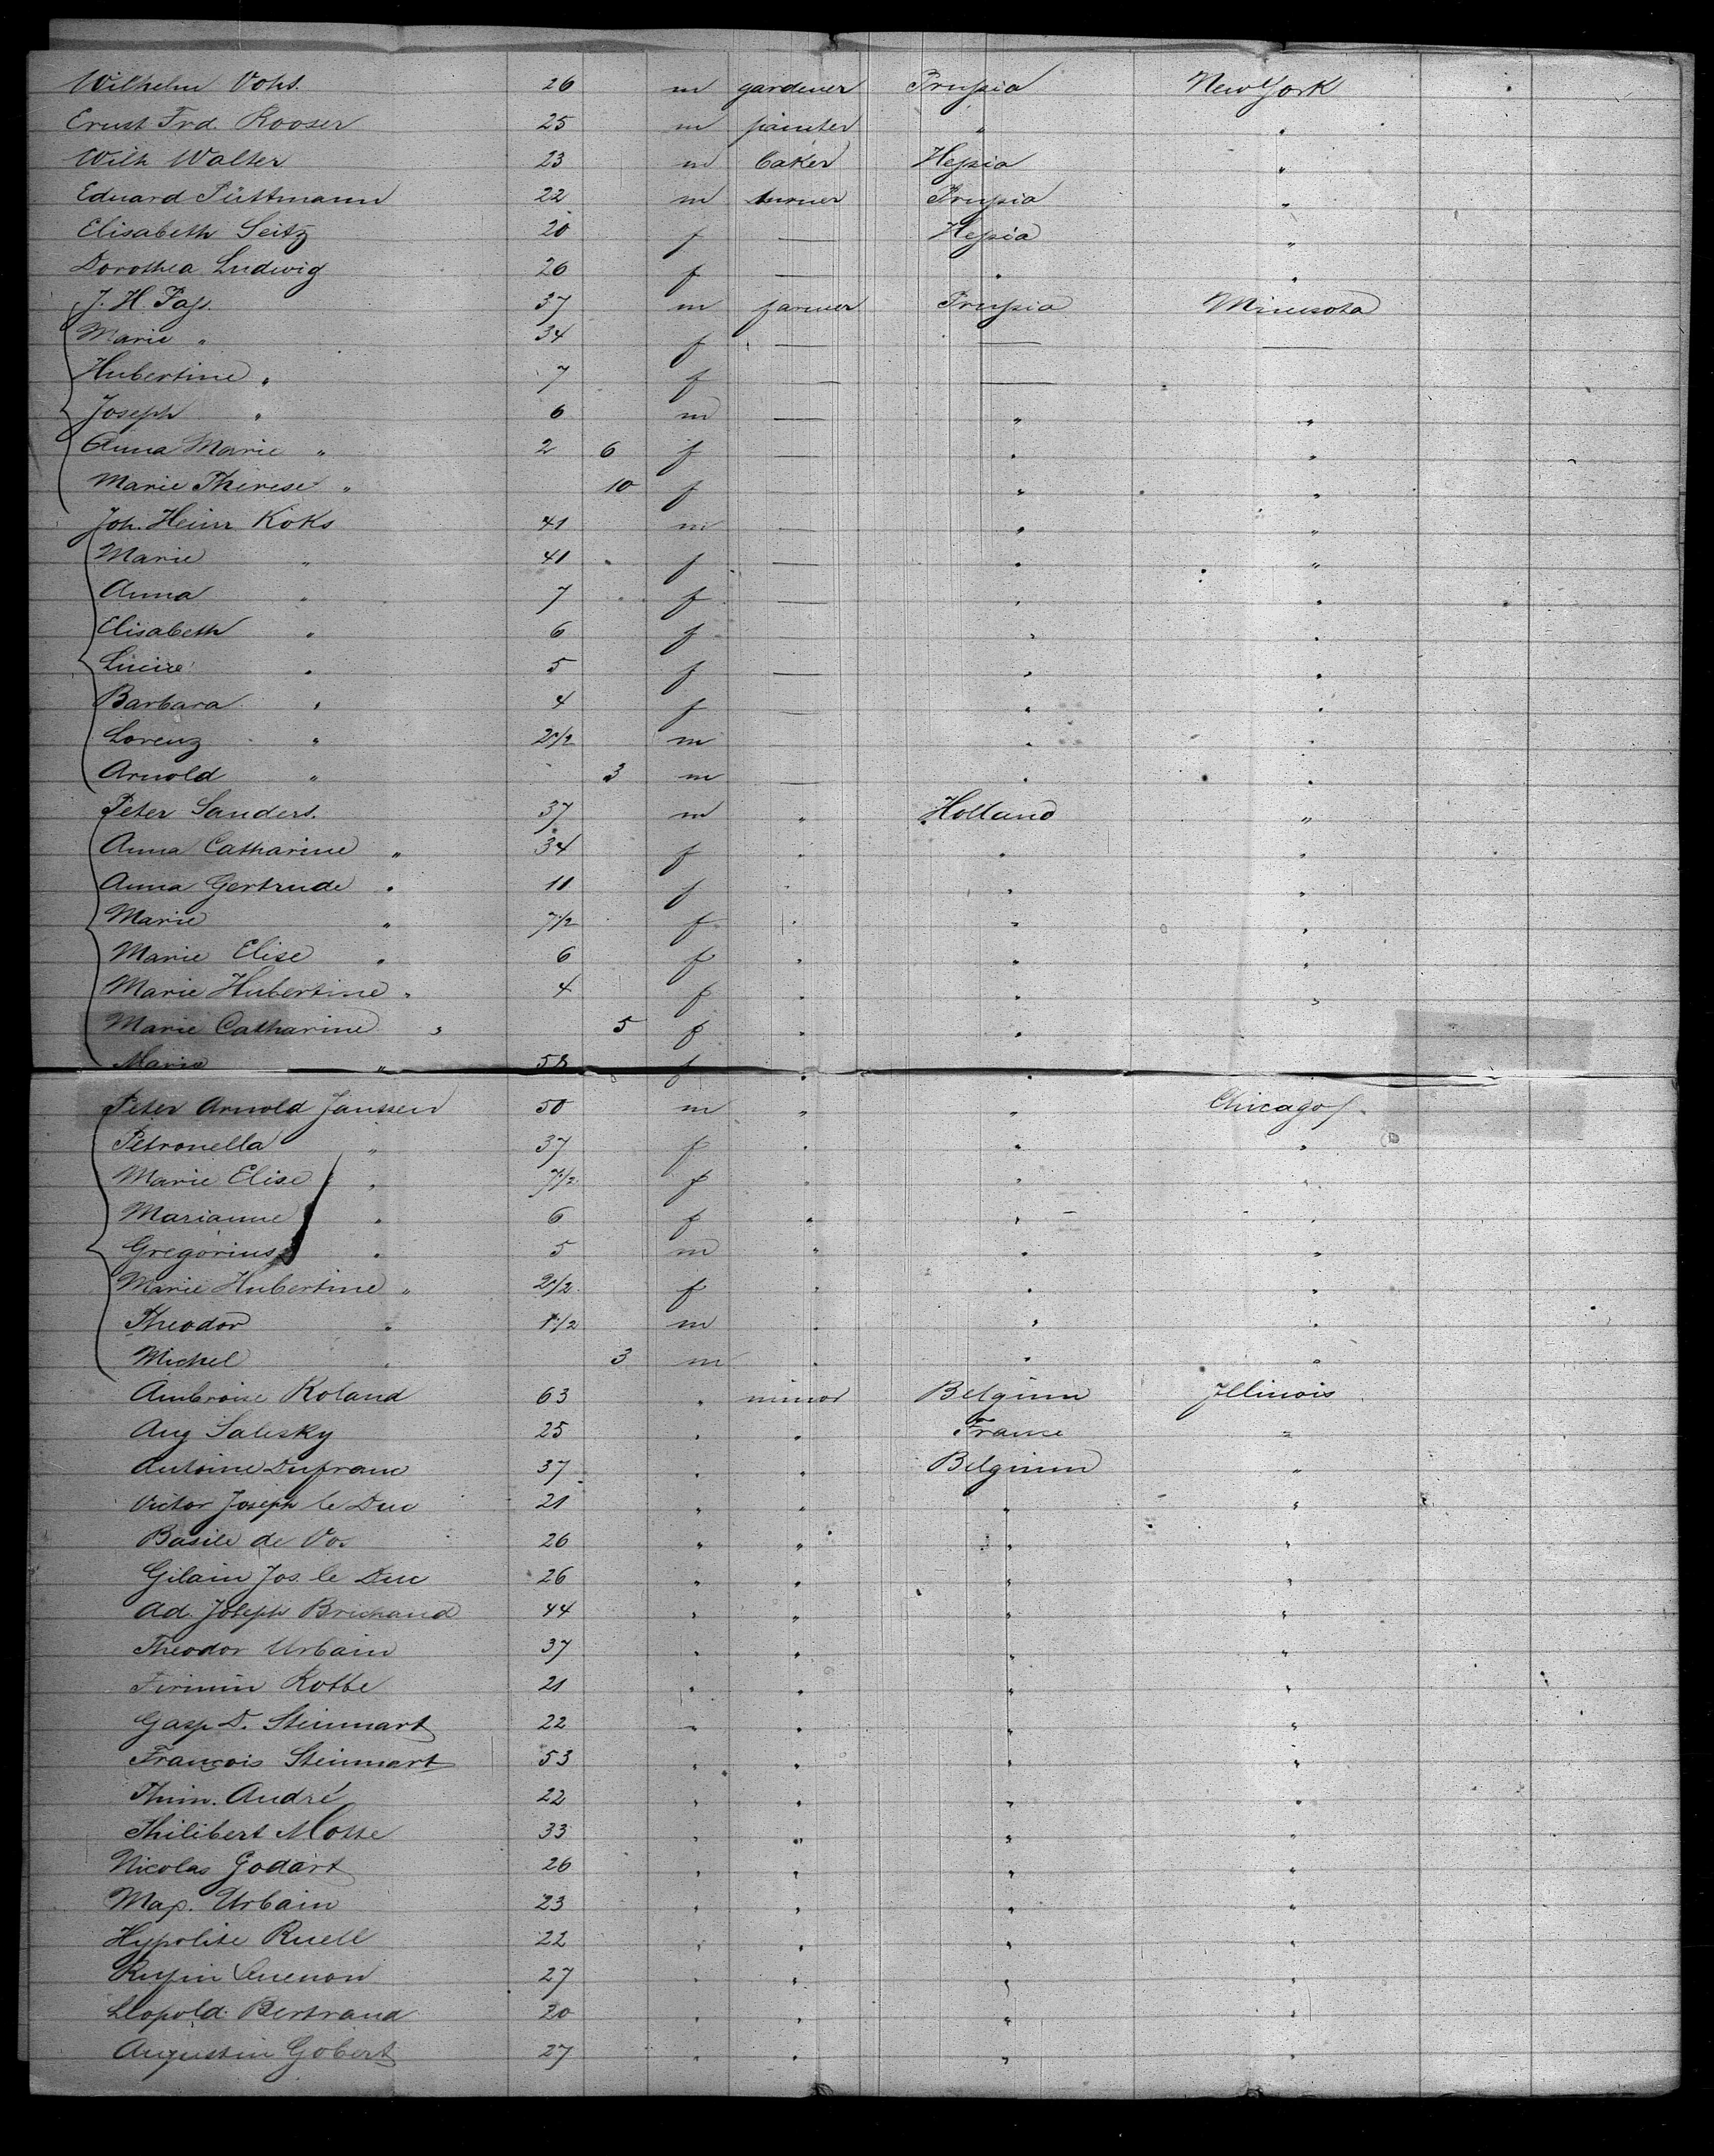 Wilhelm Vohs. 26 m gardener Prussia New York
Ernst Frd. Rooser 25 m painter " "
Wilh Walter 23 m baker Hessia "
Eduard Püttmann 22 m turner Prussia "
Elisabeth Seitz 20 f — Hessia "
Dorothea Ludwig 26 f — " "
J. H. Fass. 37 m farmer Prussia Minesota
Marie " 34 f — — —
Hubertine " 7 f — —
Joseph " 6 m — " "
Anna Marie " 2 6 f — " "
Marie Therese " 10 f — " "
Joh. Heinr Koks 41 m — " "
Marie " 41 f — " "
Anna " 7 f — " "
Elisabeth " 6 f — " "
" 5 f — " "
Barbara " 4 f — " "
Lorenz " 2 1/2 m — " "
Arnold " 3 m — " "
Peter Sanders. 37 m " Holland "
Anna Catharine " 34 f " " "
Anna Gertrude " 11 f " " "
Marie " 7 1/2 f " " "
Marie Elise " 6 f " " "
Marie Hubertine " 4 f " " "
Marie Catharine " 5 f " "
Maria " 58 f " " "
Peter Arnold Janssen 50 m " " Chicago
Petronella " 37 f " " "
Marie Elise " 7 1/2 f " " "
Marianne " 6 f " " "
Gregorius " 5 m " " "
Marie Hubertine " 2 1/2 f " " "
Theodor " 1 1/2 m " " "
Michel " 3 m " " "
Ambroise Roland 63 " minor Belgium Illinois
Aug Salesky 25 " " France "
Antoine Dufrane 37 " " Belgium "
Victor Joseph le Duc 21 " " " "
Basile de Vos 26 " " " "
Gilain Jos. le Duc 26 " " " "
Ad. Joseph Brichaud 44 " " " "
Theodor Urbain 37 " " " "
Firmin Rotbe 21 " " " "
Gasp D. Steinmart 22 " " " "
François Steinmart 53 " " " "
André 22 " " " "
Philibert Motte 33 " " " "
Nicolas Godart 26 " " " "
Urbain 23 " " " "
Hypolite Ruell 22 " " " "
27 " " " "
Leopold Bertrand 20 " " " "
Augustin Gobert 27 " " " "